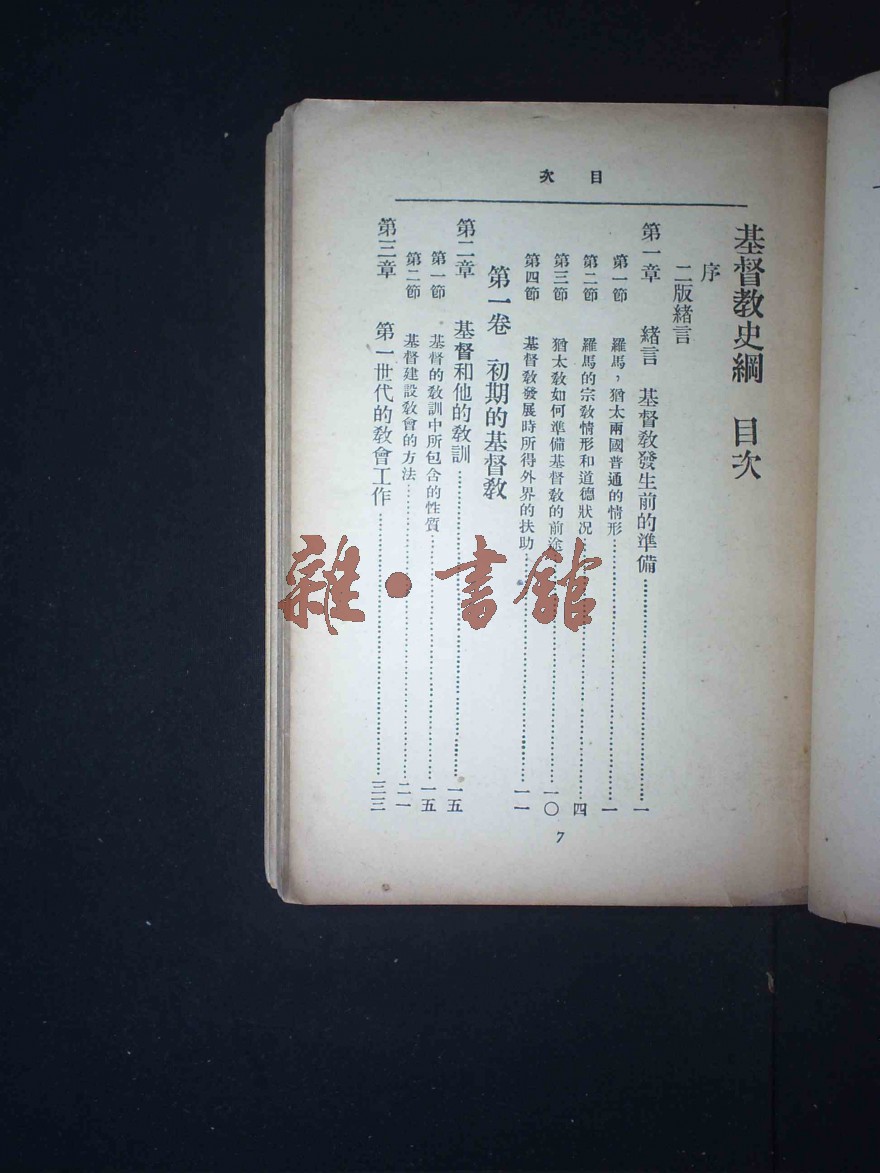 目次
基督教史綱 目次
序
二版緒言
第一章 緒言 基督教發生前的準備……一
第一節 羅馬，猶太兩國普通的情形……一
第二節 羅馬的宗教情形和道德狀況……四
第三節 猶太教如何準備基督教的前途……一〇
第四節 基督教發展時所得外界的扶助……一一
第一卷 初期的基督教
第二章 基督和他的教訓……一五
第一節 基督的教訓中所包含的性質……一五
第二節 基督建設教會的方法……二一
第三章 第一世代的教會工作……三三
7
雜·書館